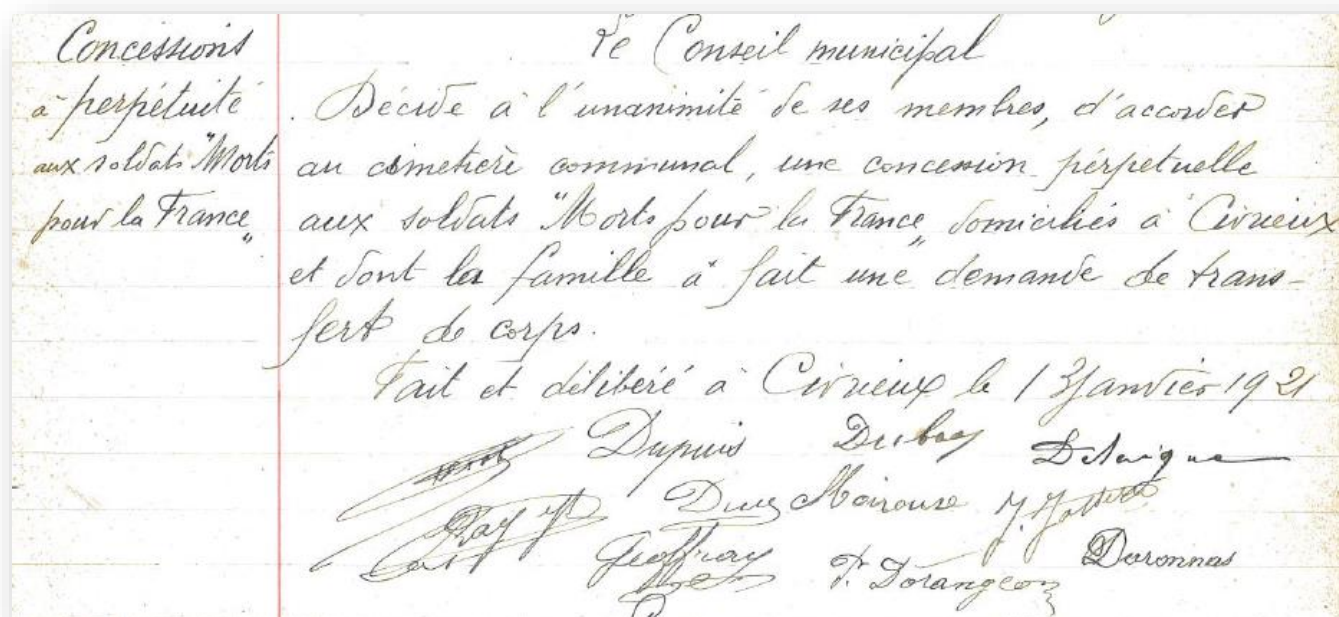 Concessions
à perpétuité
aux soldats "Morts
pour la France„
Le Conseil municipal
. Décide à l'unanimité de ses membres, d'accorder
au cimetière communal, une concession perpétuelle
aux soldats "Morts pour la France„ domiciliés à Civrieux
et dont la famille a fait une demande de trans-
fert de corps.
Fait et délibéré à Civrieux le 13 Janvier 1921
Dupuis Dubuy
Geoffray P. Dorangeon Duronnas